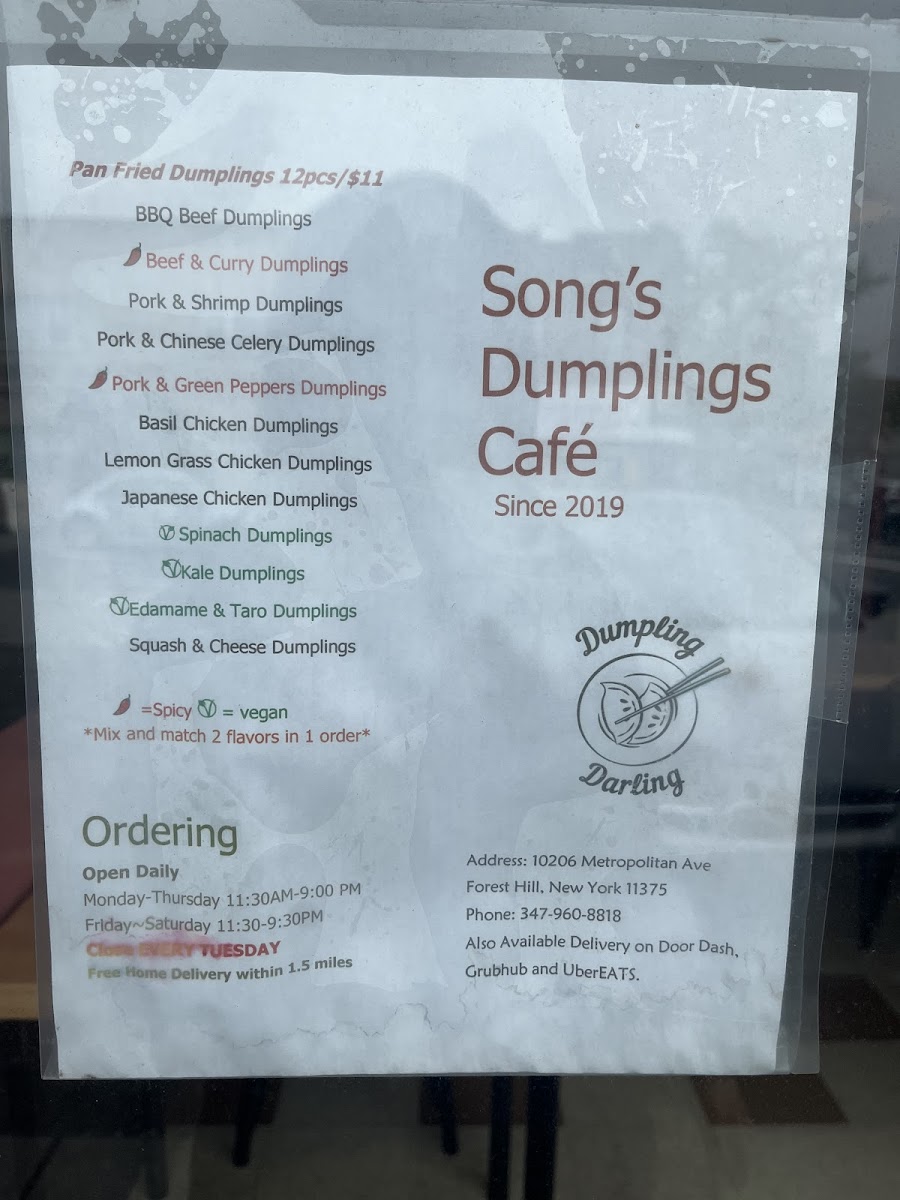 Pan Fried Dumplings 12pcs/$11
BBQ Beef Dumplings
Beef & Curry Dumplings
Pork & Shrimp Dumplings
Pork & Chinese Celery Dumplings
Pork & Green Peppers Dumplings
Basil Chicken Dumplings
Lemon Grass Chicken Dumplings
Japanese Chicken Dumplings
Spinach Dumplings
Kale Dumplings
Edamame & Taro Dumplings
Squash & Cheese Dumplings
=Spicy = vegan
*Mix and match 2 flavors in 1 order*
Ordering
Open Daily
Monday-Thursday 11:30AM-9:00 PM
Friday~Saturday 11:30-9:30PM
Close EVERY TUESDAY
Free Home Delivery within 1.5 miles
Song's
Dumplings
Café
Since 2019
Dumpling
Darling
Address: 10206 Metropolitan Ave
Forest Hill, New York 11375
Phone: 347-960-8818
Also Available Delivery on Door Dash,
Grubhub and UberEATS.